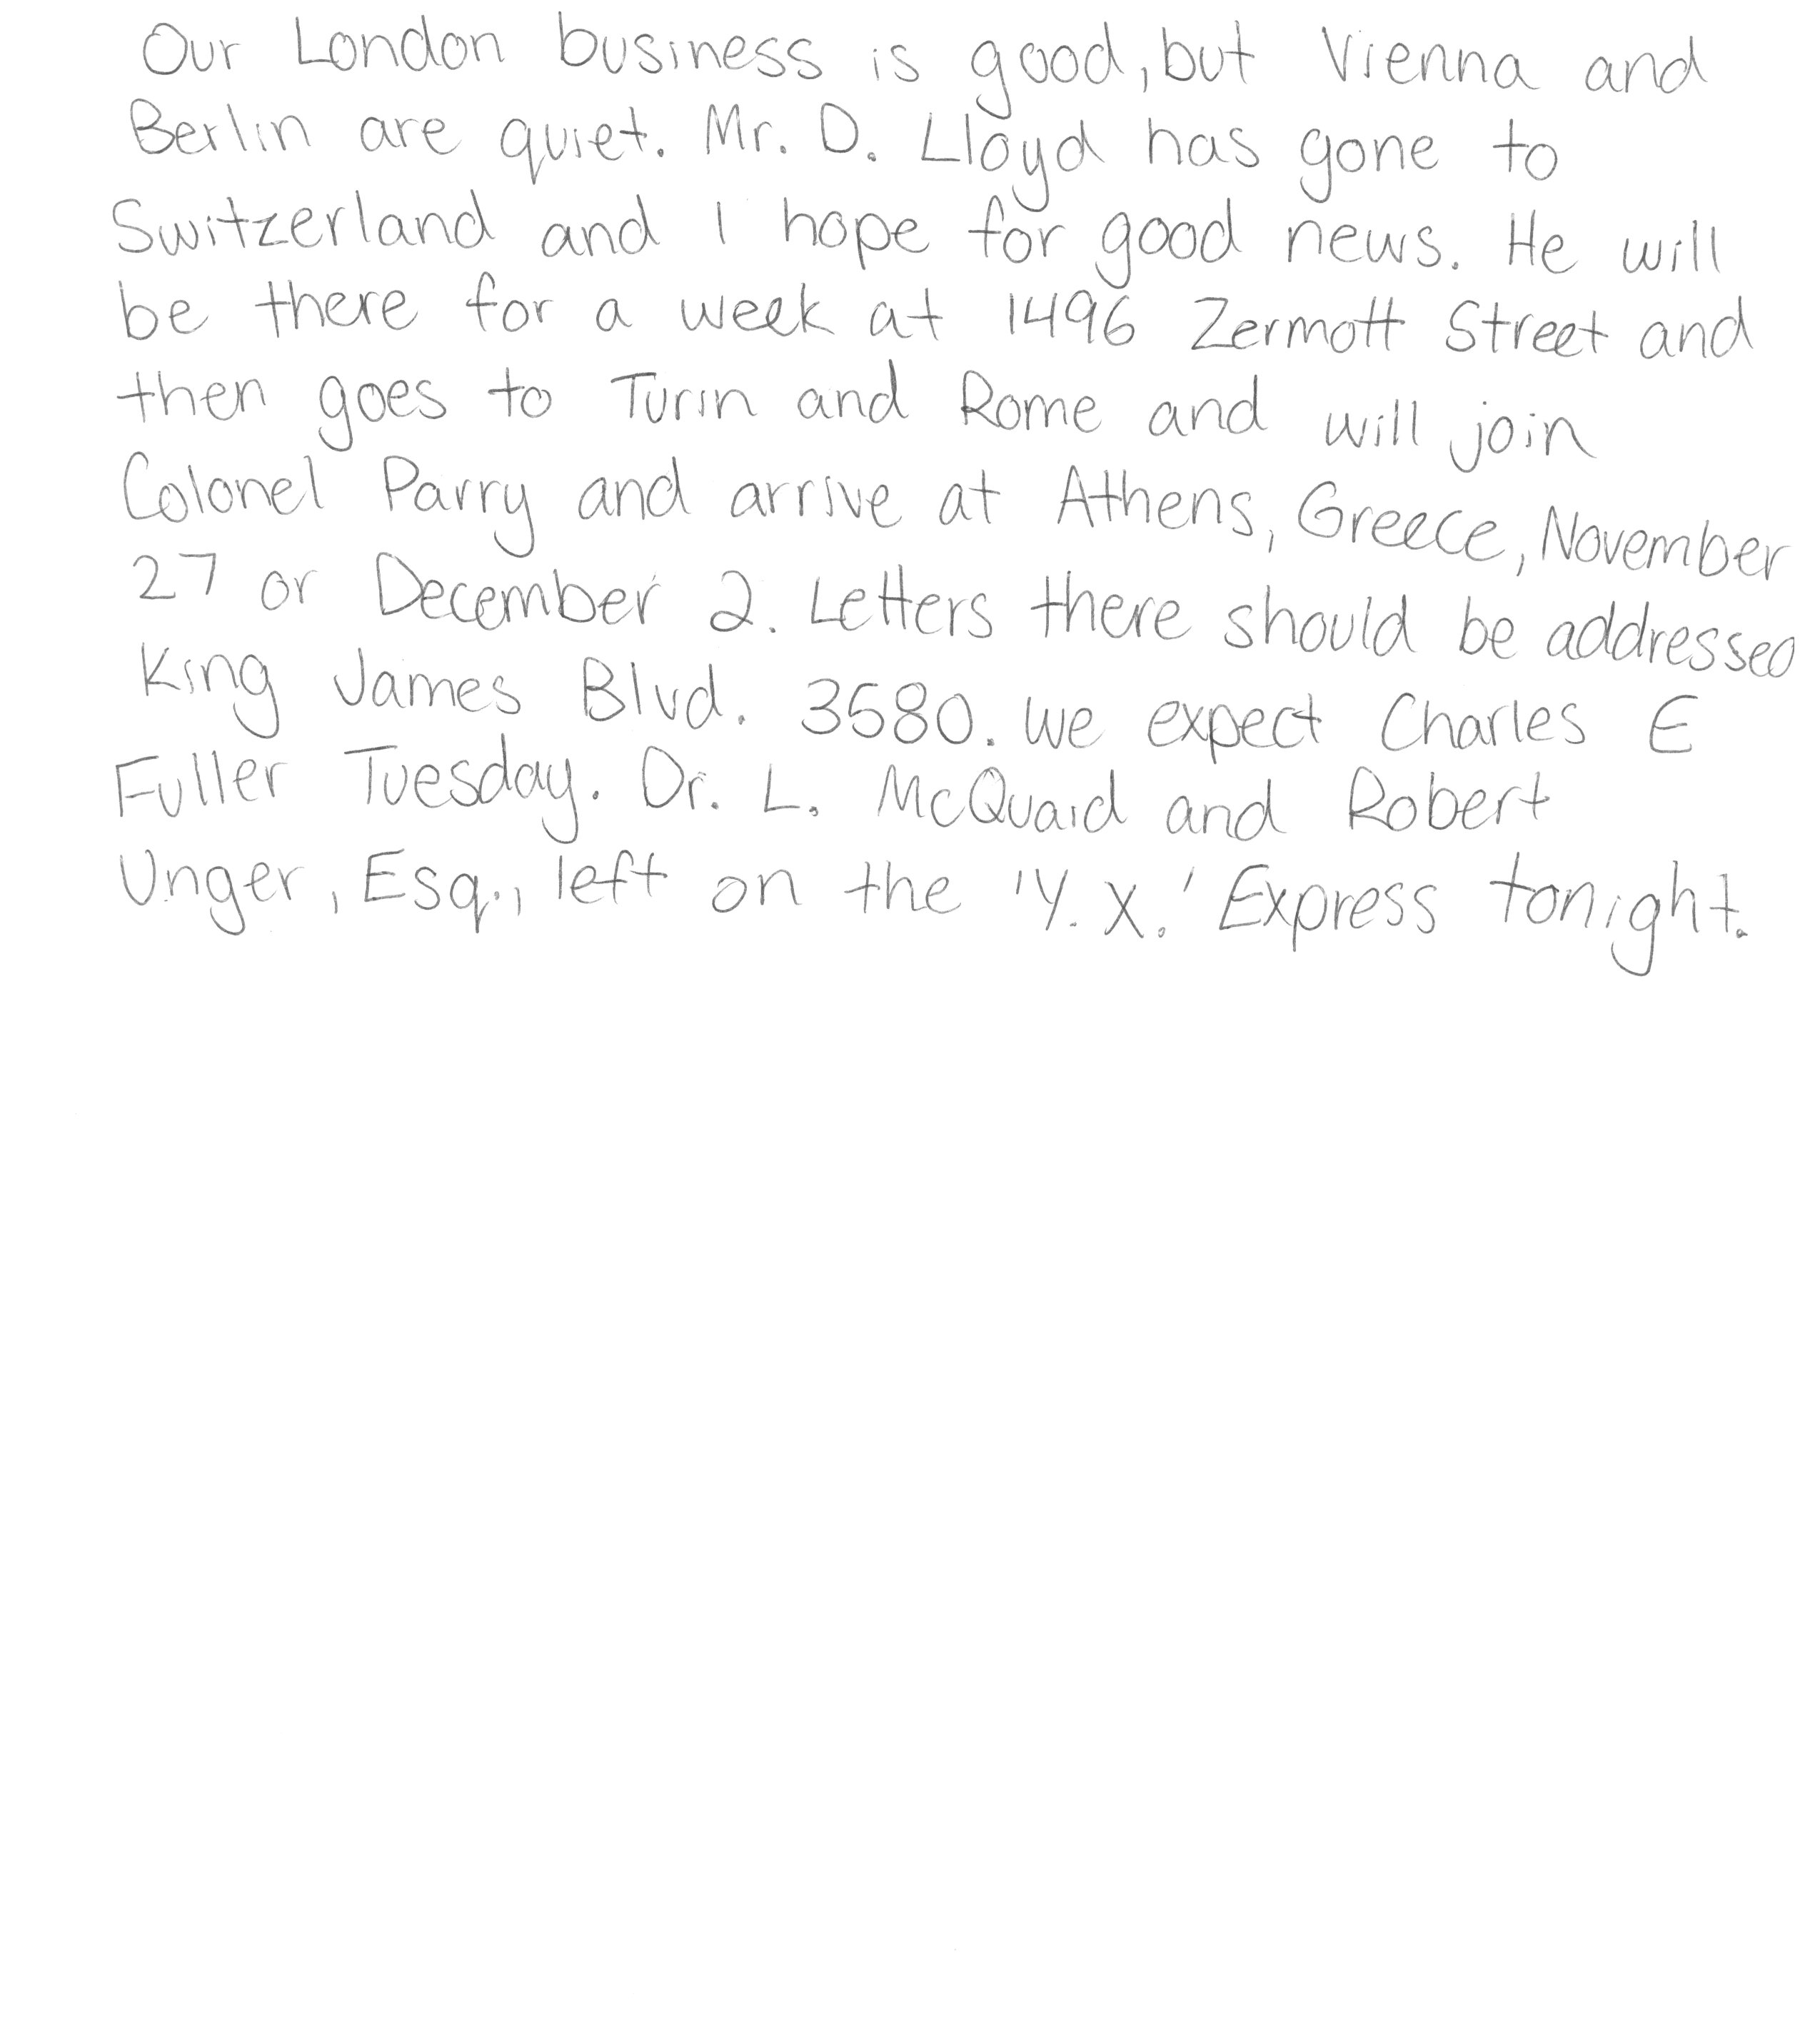 Our London business is good, but Vienna and
Berlin are quiet. Mr. D. Lloyd has gone to
Switzerland and I hope for good news. He will
be there for a week at 1496 Zermott Street and
then goes to Turin and Rome and will join
Colonel Parry and arrive at Athens, Greece, November
27 or December 2. Letters there should be addressed
King James Blvd. 3580. We expect Charles E
Fuller Tuesday. Dr. L. McQuaid and Robert
Unger, Esq., left on the 'Y. X.' Express tonight.